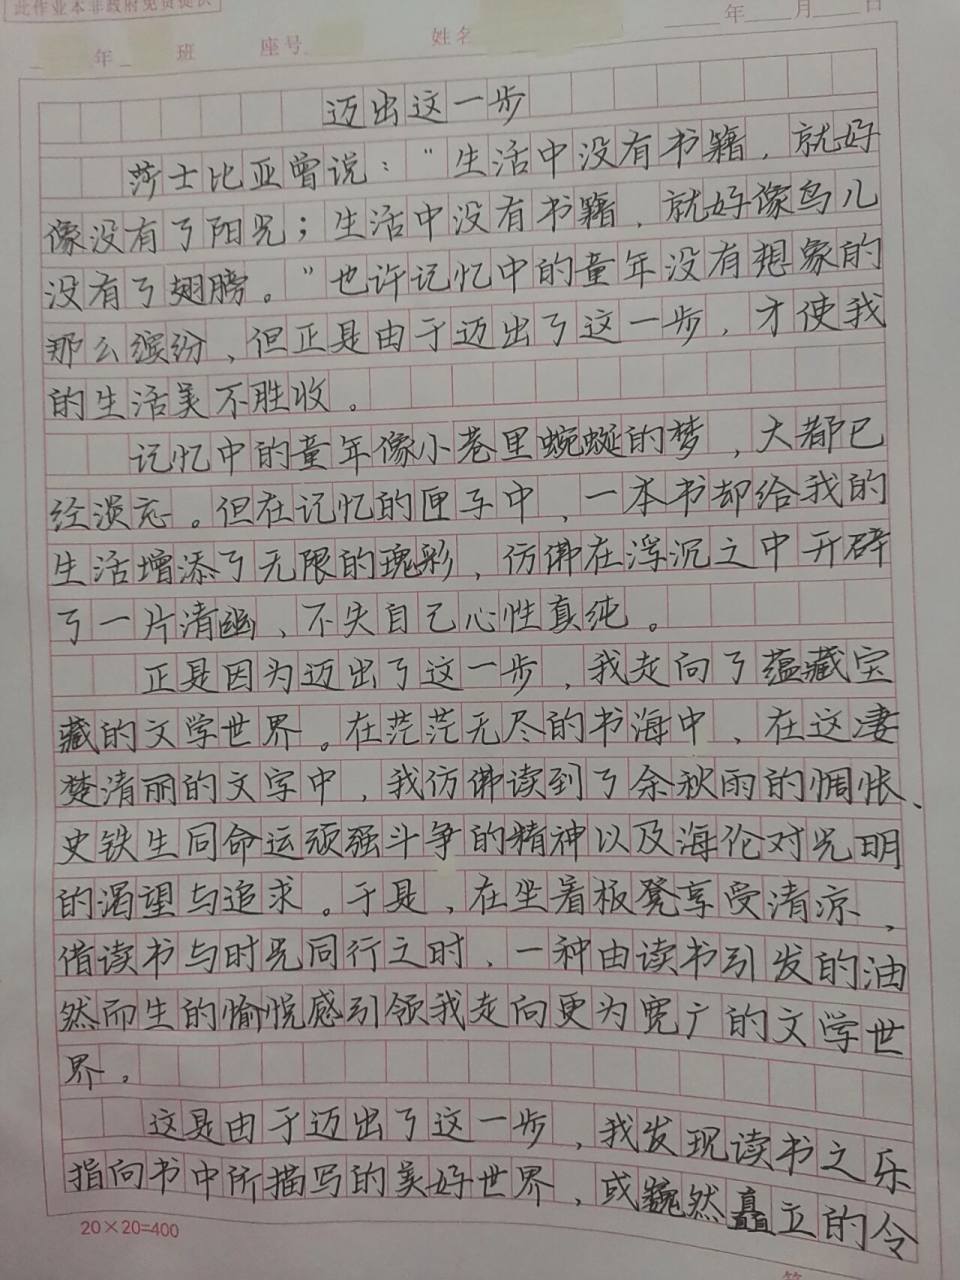 此作业本非政府免费提供
年 班 座号 姓名 年 月 日
迈出这一步
莎士比亚曾说：“生活中没有书籍，就好
像没有了阳光；生活中没有书籍，就好像鸟儿
没有了翅膀。”也许记忆中的童年没有想象的
那么缤纷，但正是由于迈出了这一步，才使我
的生活美不胜收。
记忆中的童年像小巷里蜿蜒的梦，大都已
经淡忘。但在记忆的匣子中，一本书却给我的
生活增添了无限的瑰彩，仿佛在浮沉之中开辟
了一片清幽，不失自己心性真纯。
正是因为迈出了这一步，我走向了蕴藏宝
藏的文学世界。在茫茫无尽的书海中，在这凄
楚清丽的文字中，我仿佛读到了余秋雨的惆怅、
史铁生同命运顽强斗争的精神以及海伦对光明
的渴望与追求。于是，在坐着板凳享受清凉，
借读书与时光同行之时，一种由读书引发的油
然而生的愉悦感引领我走向更为宽广的文学世
界。
这是由于迈出了这一步，我发现读书之乐
指向书中所描写的美好世界，或巍然矗立的令
20×20=400